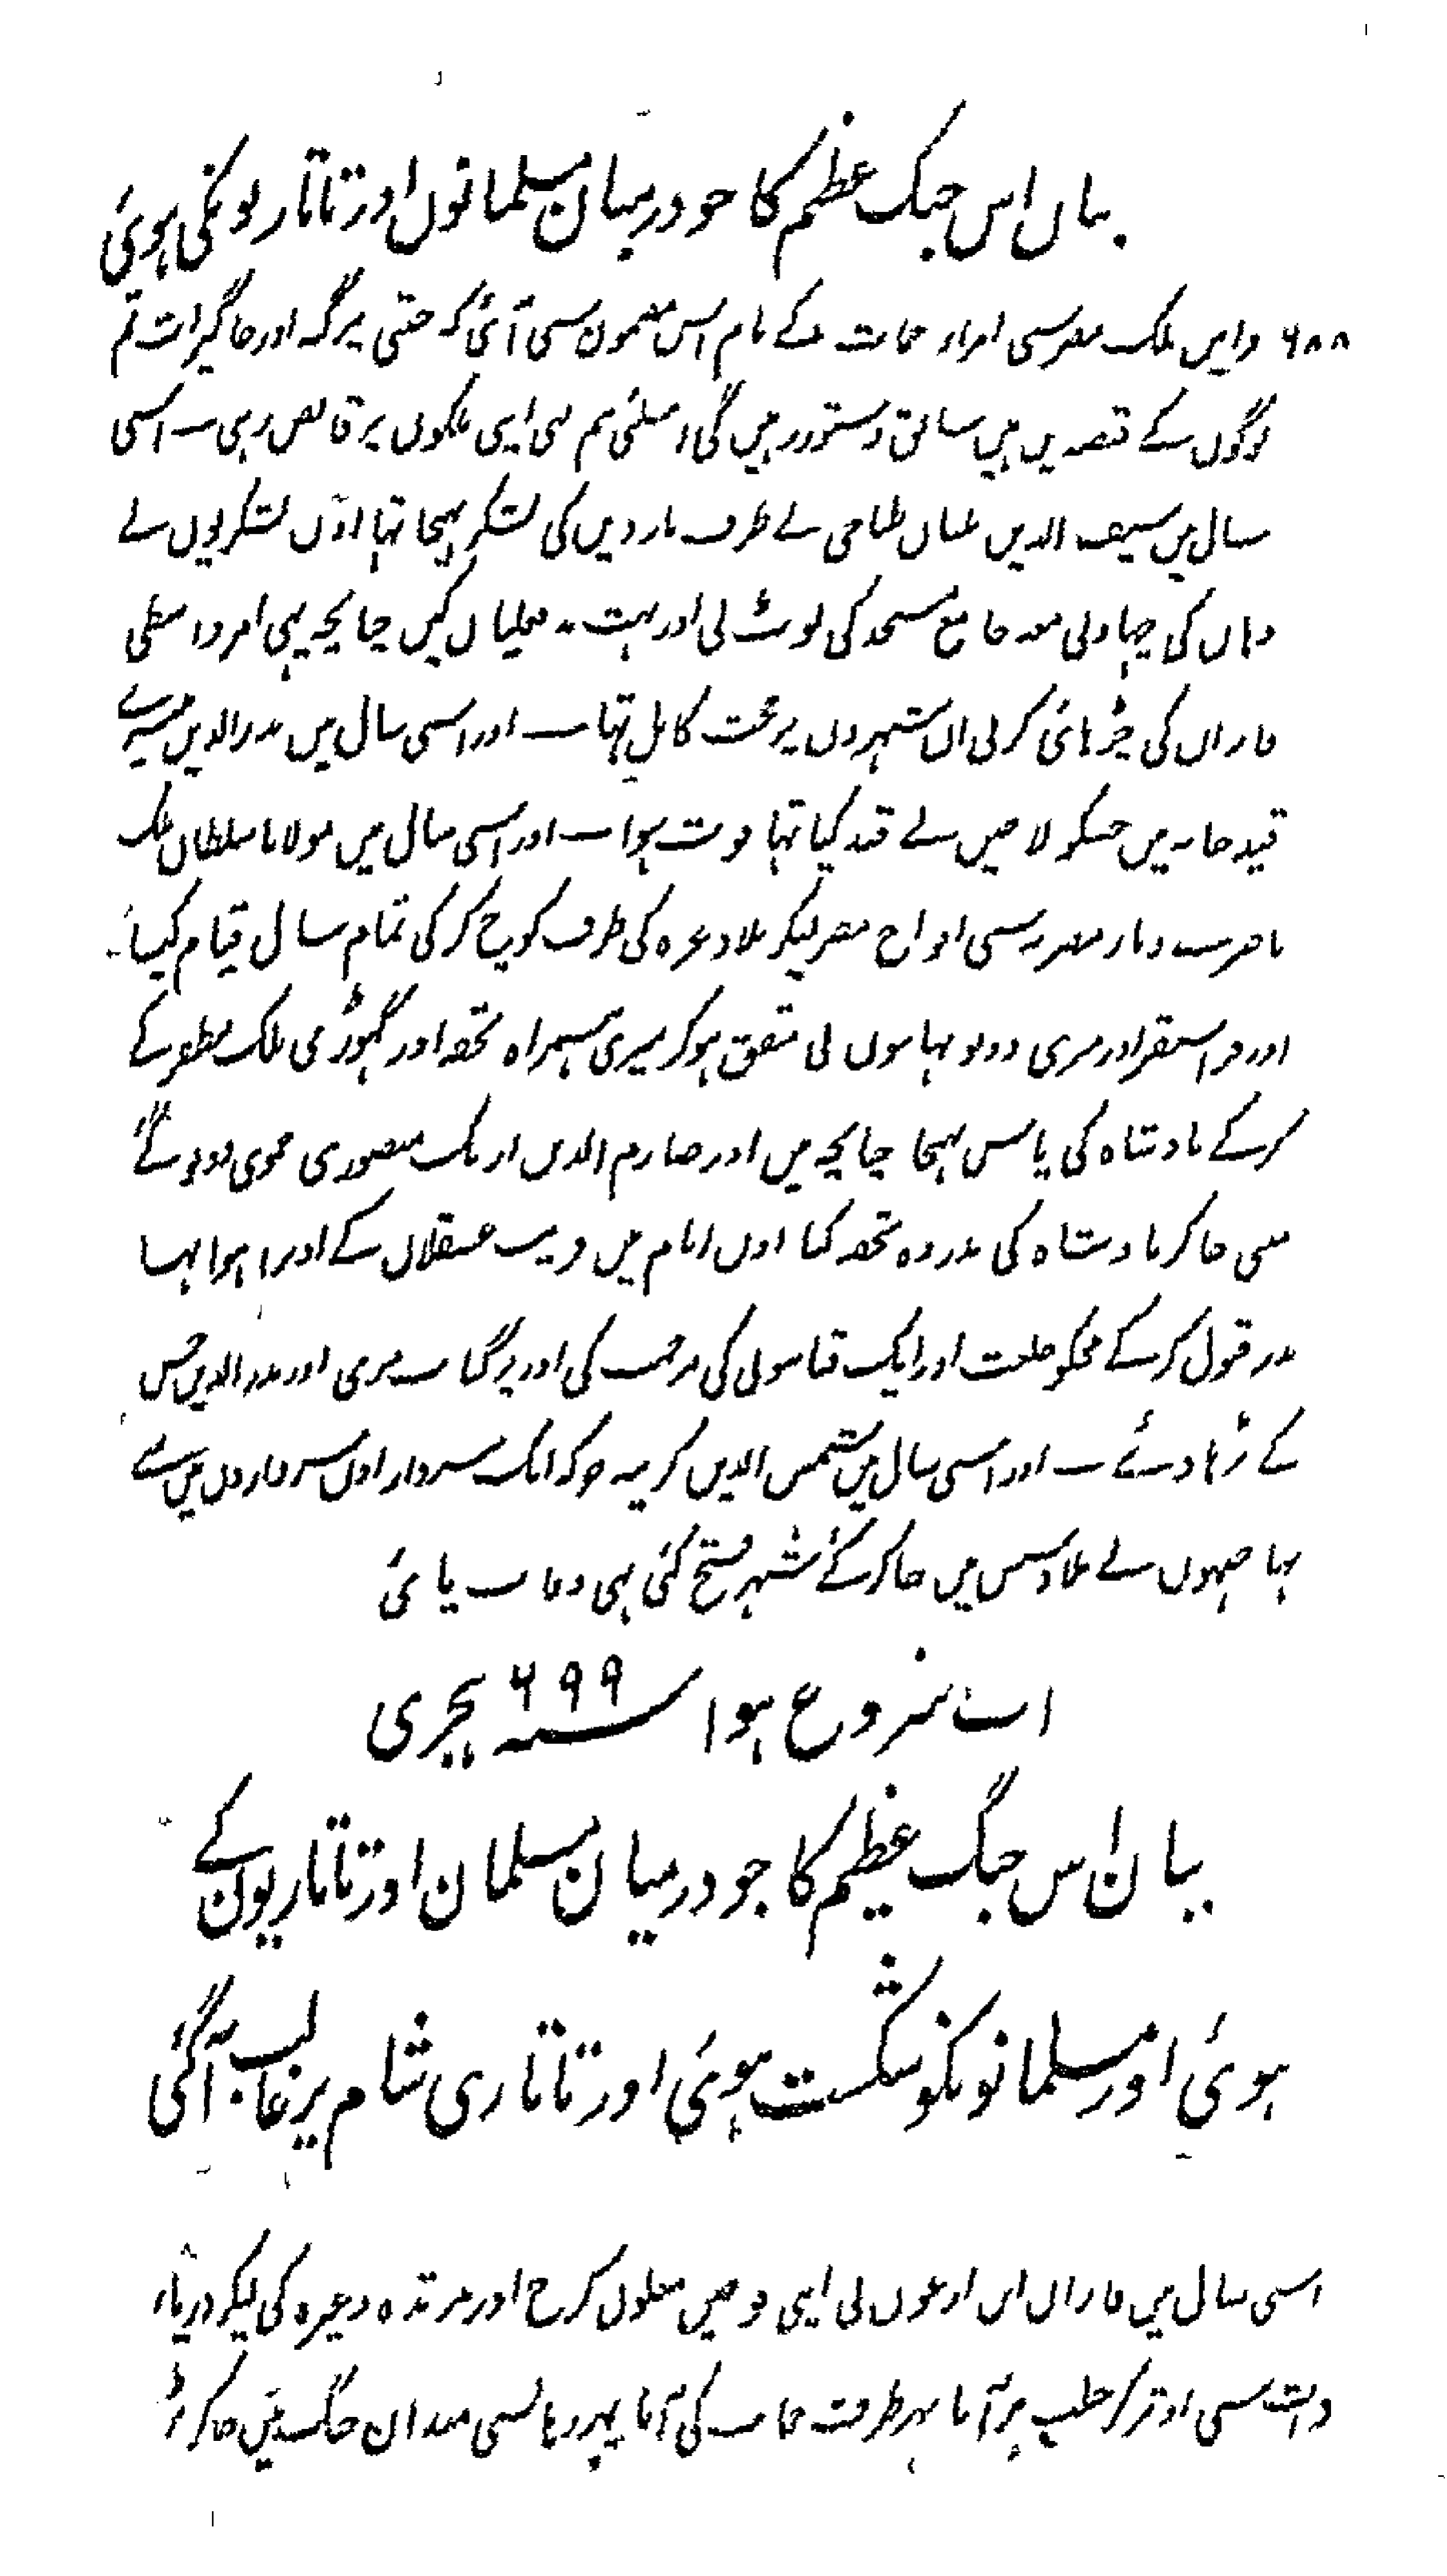 بیان اس جنگ عظیم کا جو درمیان مسلمانوں اور تاتاریونکی ہوئی
۶۸۸ ملک مصر سی امراء حمات کے نام اس مضمون سی آئی کہ جتنی پرگنہ اور جاگیرات تم
لوگوں کے قبضہ میں ہیں سابق دستور رہیں گی اسلئی تم اپنی ملکوں پر قابض رہی ۔ اسی
سال میں سیف الدین بلبان طباخی نے طرف ماردین کی لشکر بہیجا تہا اون لشکریوں نے
وہاں کی چہاونی معہ جامع مسجد کی لوٹ لی اور بہت بد عملیاں کیں چنانچہ یہی امر واسطی
قازان کی چڑہائی کرنی ان شہروں پر حجت کامل تہا ۔ اور اسی سال میں بدر الدین بیسری
قید خانہ میں جسکو لاجین نے قید کیا تہا فوت ہوا ۔ اور اسی سال میں مولانا سلطان ملک
ناصر دیار مصریہ سی افواج مصر لیکر بلاد غزہ کی طرف کوچ کر کی تمام سال قیام کیا
اور قراسنقر اور میری دونو بہائیوں نی متفق ہوکر میری ہمراہ تحفہ اور گہوڑی ملک مظفر کے
کرکے بادشاہ کی پاس بہیجا چنانچہ میں اور صارم الدین ازبک منصوری حموی دونو گئے
میں جاکر بادشاہ کی نذر وہ تحفہ کیا اون ایام میں قریب عسقلان کے اوترا ہوا تہا
نذر قبول کر کے مجکو خلعت اور ایک قبا سونی کی مرحمت کی اور پرگنات میری اور بدر الدین حسن
کے بڑہا دئے ۔ اور اسی سال میں شمس الدین کریہ جو کہ ایک سردار اون سرداروں میں سے
تہا جنہوں نے بلاد سیس میں جا کر کئے شہر فتح کئی تہی وفات پائی
اب شروع ہوا سنہ ۶۹۹ ہجری
بیان اس جنگ عظیم کا جو درمیان مسلمان اور تاتاریون کے
ہوئی اور مسلمانونکو شکست ہوئی اور تاتاری شام پر غالب آگئی
اسی سال میں قازان ابن ارغون نی اپنی فوجیں مغلوں کرج اور مرتدہ وغیرہ کی لیکر دریاء
فرات سی اوتر کر حلب پر آیا پہر طرف حمات کی آیا پہر وہاں سی میدان جنگ میں جا کر